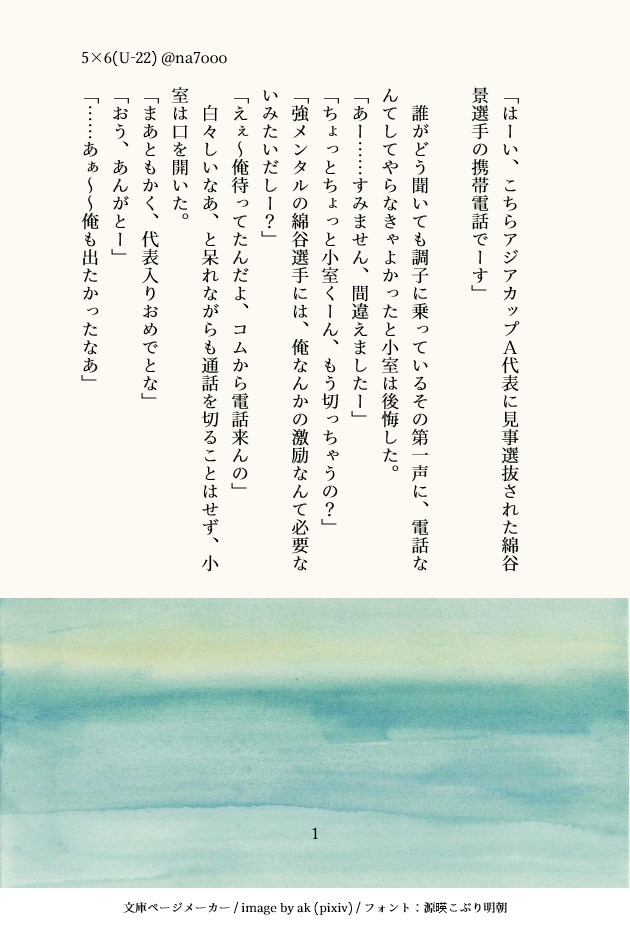 5×6(U-22) @na7ooo
「はーい、こちらアジアカップA代表に見事選抜された綿谷
景選手の携帯電話でーす」
　誰がどう聞いても調子に乗っているその第一声に、電話な
んてしてやらなきゃよかったと小室は後悔した。
「あー……すみません、間違えましたー」
「ちょっとちょっと小室くーん、もう切っちゃうの？」
「強メンタルの綿谷選手には、俺なんかの激励なんて必要な
いみたいだしー？」
「えぇ〜俺待ってたんだよ、コムから電話来んの」
　白々しいなあ、と呆れながらも通話を切ることはせず、小
室は口を開いた。
「まあともかく、代表入りおめでとな」
「おう、あんがとー」
「……あぁ〜〜俺も出たかったなあ」
1
文庫ページメーカー / image by ak (pixiv) / フォント：源暎こぶり明朝